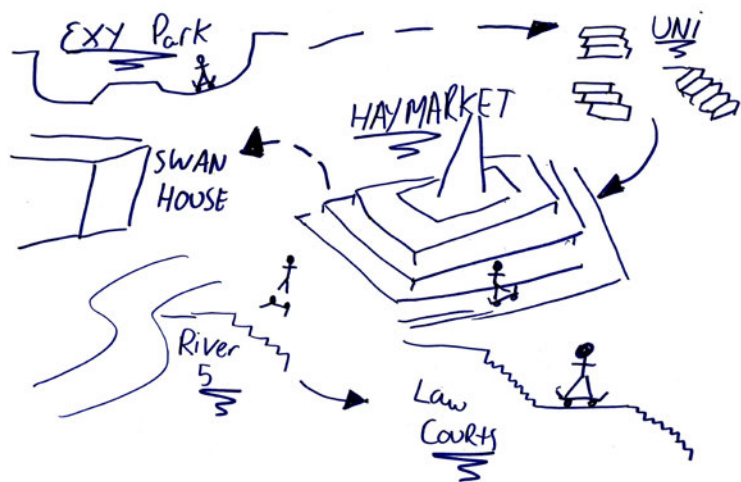 EXY Park
UNI
HAYMARKET
SWAN
HOUSE
River
5
Law
COURTS